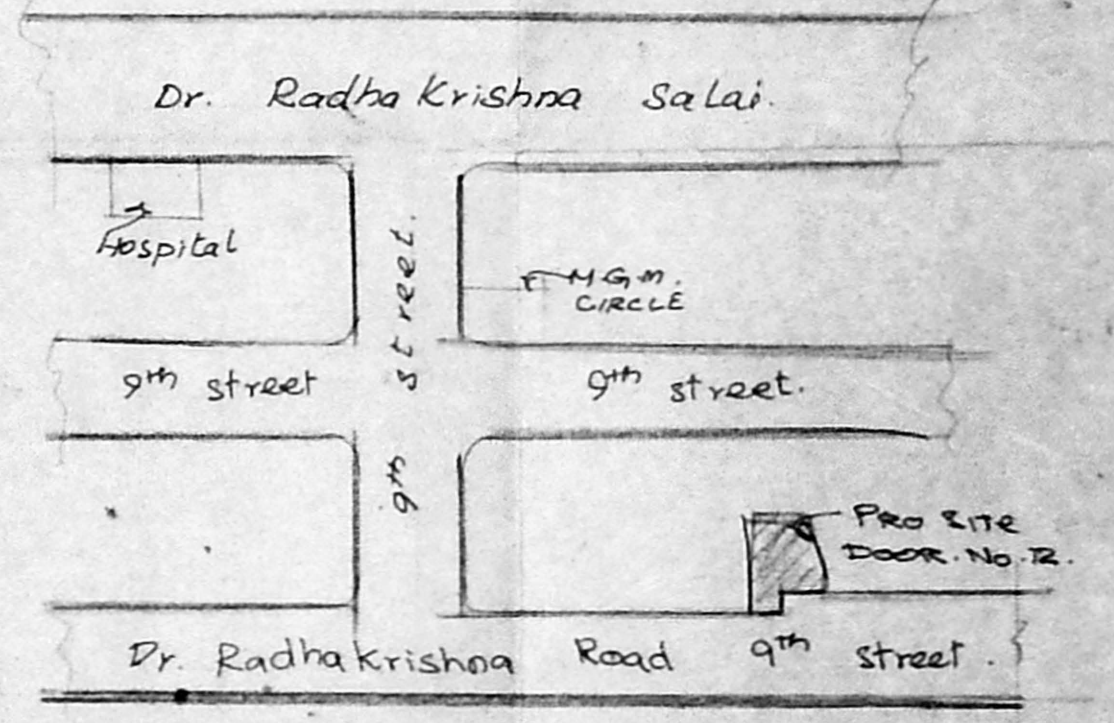 Dr. Radha Krishna Salai.
Hospital
M.G.M.
CIRCLE
9th street.
9th street
9th street.
PRO SITE
DOOR. No. 12.
Dr. Radhakrishna Road 9th street.